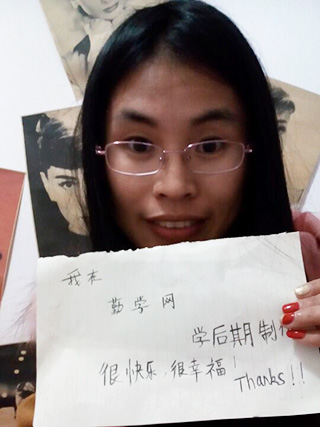 我在
勤学网
学后期制作
很快乐.很幸福!
Thanks!!